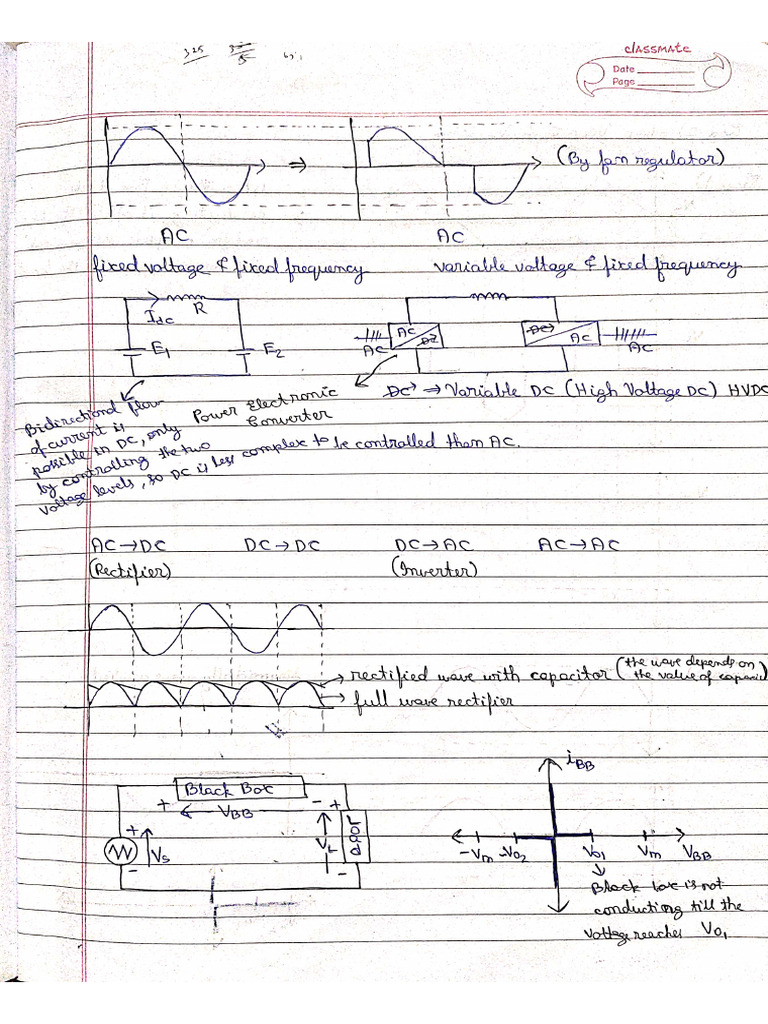 325
classmate
Date
Page
(By fan regulator)
AC
AC
fixed voltage & fixed frequency
variable voltage & fixed frequency
R
Idc
E1
E2
AC
DC
AC
DC
AC
AC
DC → Variable DC (High Voltage DC) HVDC
Power Electronic
Converter
Bidirectional flow
of current is
possible in DC, only
by controlling the two
voltage levels, so DC is less complex to be controlled than AC.
AC→DC DC→DC DC→AC AC→AC
(Rectifier) (Inverter)
rectified wave with capacitor (the wave depends on
the value of capaci
full wave rectifier
Black Box
+ VBB - +
+
Vs
-
VL
Load
-
iBB
-Vm -Vo2 Vo1 Vm VBB
Black box is not
conducting till the
voltage reaches Vo1